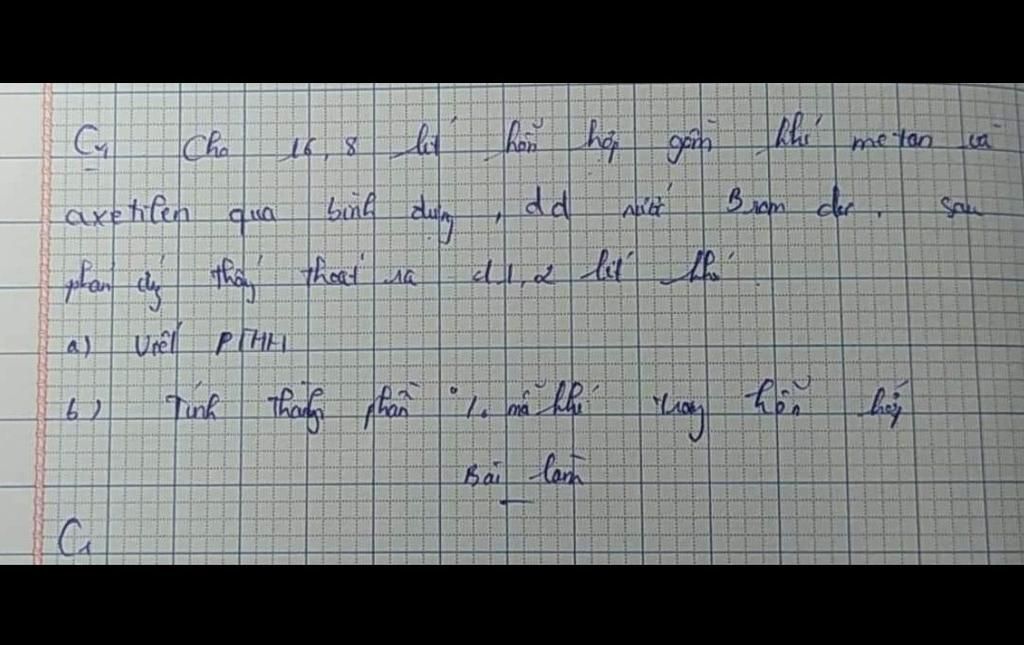 C4 Cho 16,8 lít hỗn hợp gồm khí metan và
axetilen qua bình đựng, dd nước Brom dư. sau
phản ứng thấy thoát ra 1,2 lít khí
a) Viết PTHH
b) Tính thành phần % mỗi khí trong hỗn hợp
Bài làm
C1